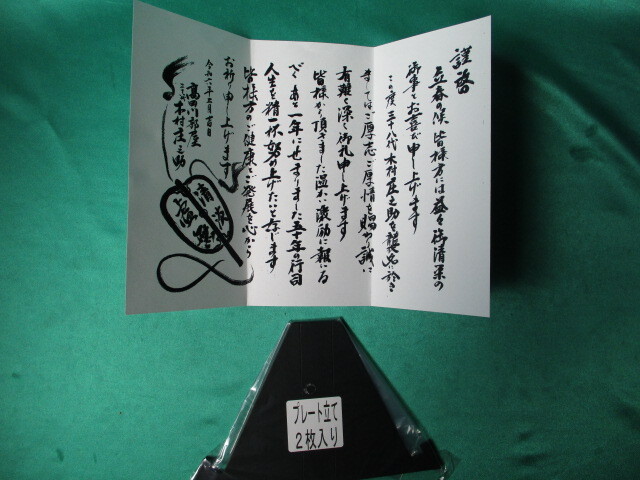 謹啓
立春の候 皆様方には益々御清栄の
御事とお喜び申し上げます
この度 三十八代 木村庄之助を襲名
ましてはご厚志ご厚情を賜わり誠に
有難く深く御礼申し上げます
皆様から頂きました温かい激励に報いる
べくあと一年にせまりました五十年の行司
人生を精一杯努め上げたいと存じます
皆様方のご健康とご発展を心から
お祈り申し上げます
高田川部屋
木村庄之助
プレート立て
2枚入り